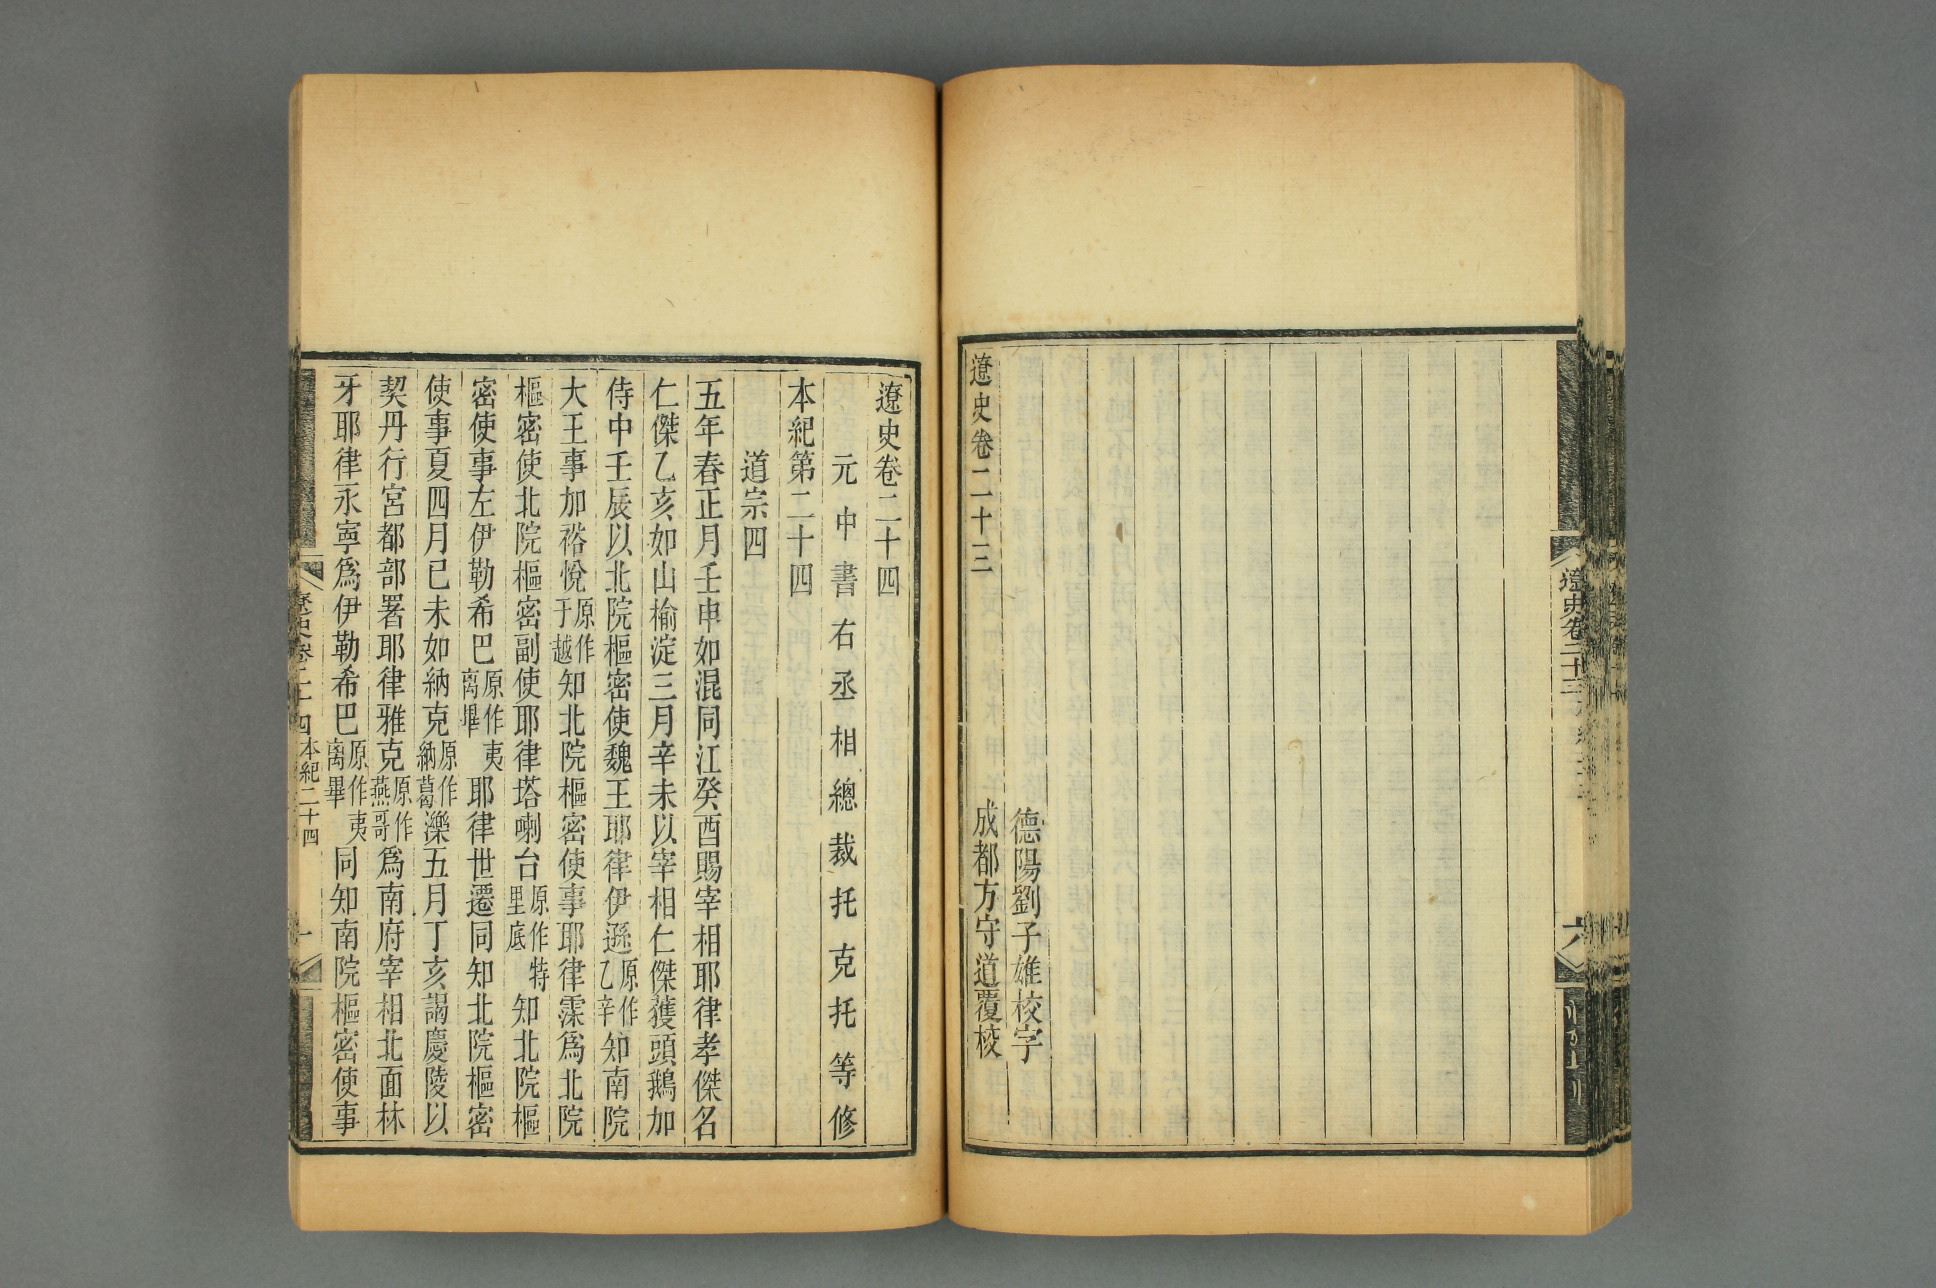 遼史卷二十三
德陽劉子雄校字
遼史卷二十三
成都方守道覆校
遼史卷二十四
元中書右丞相總裁托克托等修
本紀第二十四
道宗四
五年春正月壬申如混同江癸酉賜宰相耶律孝傑名
仁傑乙亥如山榆淀三月辛未以宰相仁傑獲頭鵝加
侍中壬辰以北院樞密使魏王耶律伊遜原作乙辛知南院
大王事加裕悅原作于越知北院樞密使事耶律霂爲北院
樞密使北院樞密副使耶律塔喇台原作特里底知北院樞
密使事左伊勒希巴原作夷离畢耶律世遷同知北院樞密
使事夏四月已未如納克原作納葛濼五月丁亥謁慶陵以
契丹行宮都部署耶律雅克原作燕哥爲南府宰相北面林
牙耶律永寧爲伊勒希巴原作夷离畢同知南院樞密使事
遼史卷二十四 本紀二十四 一